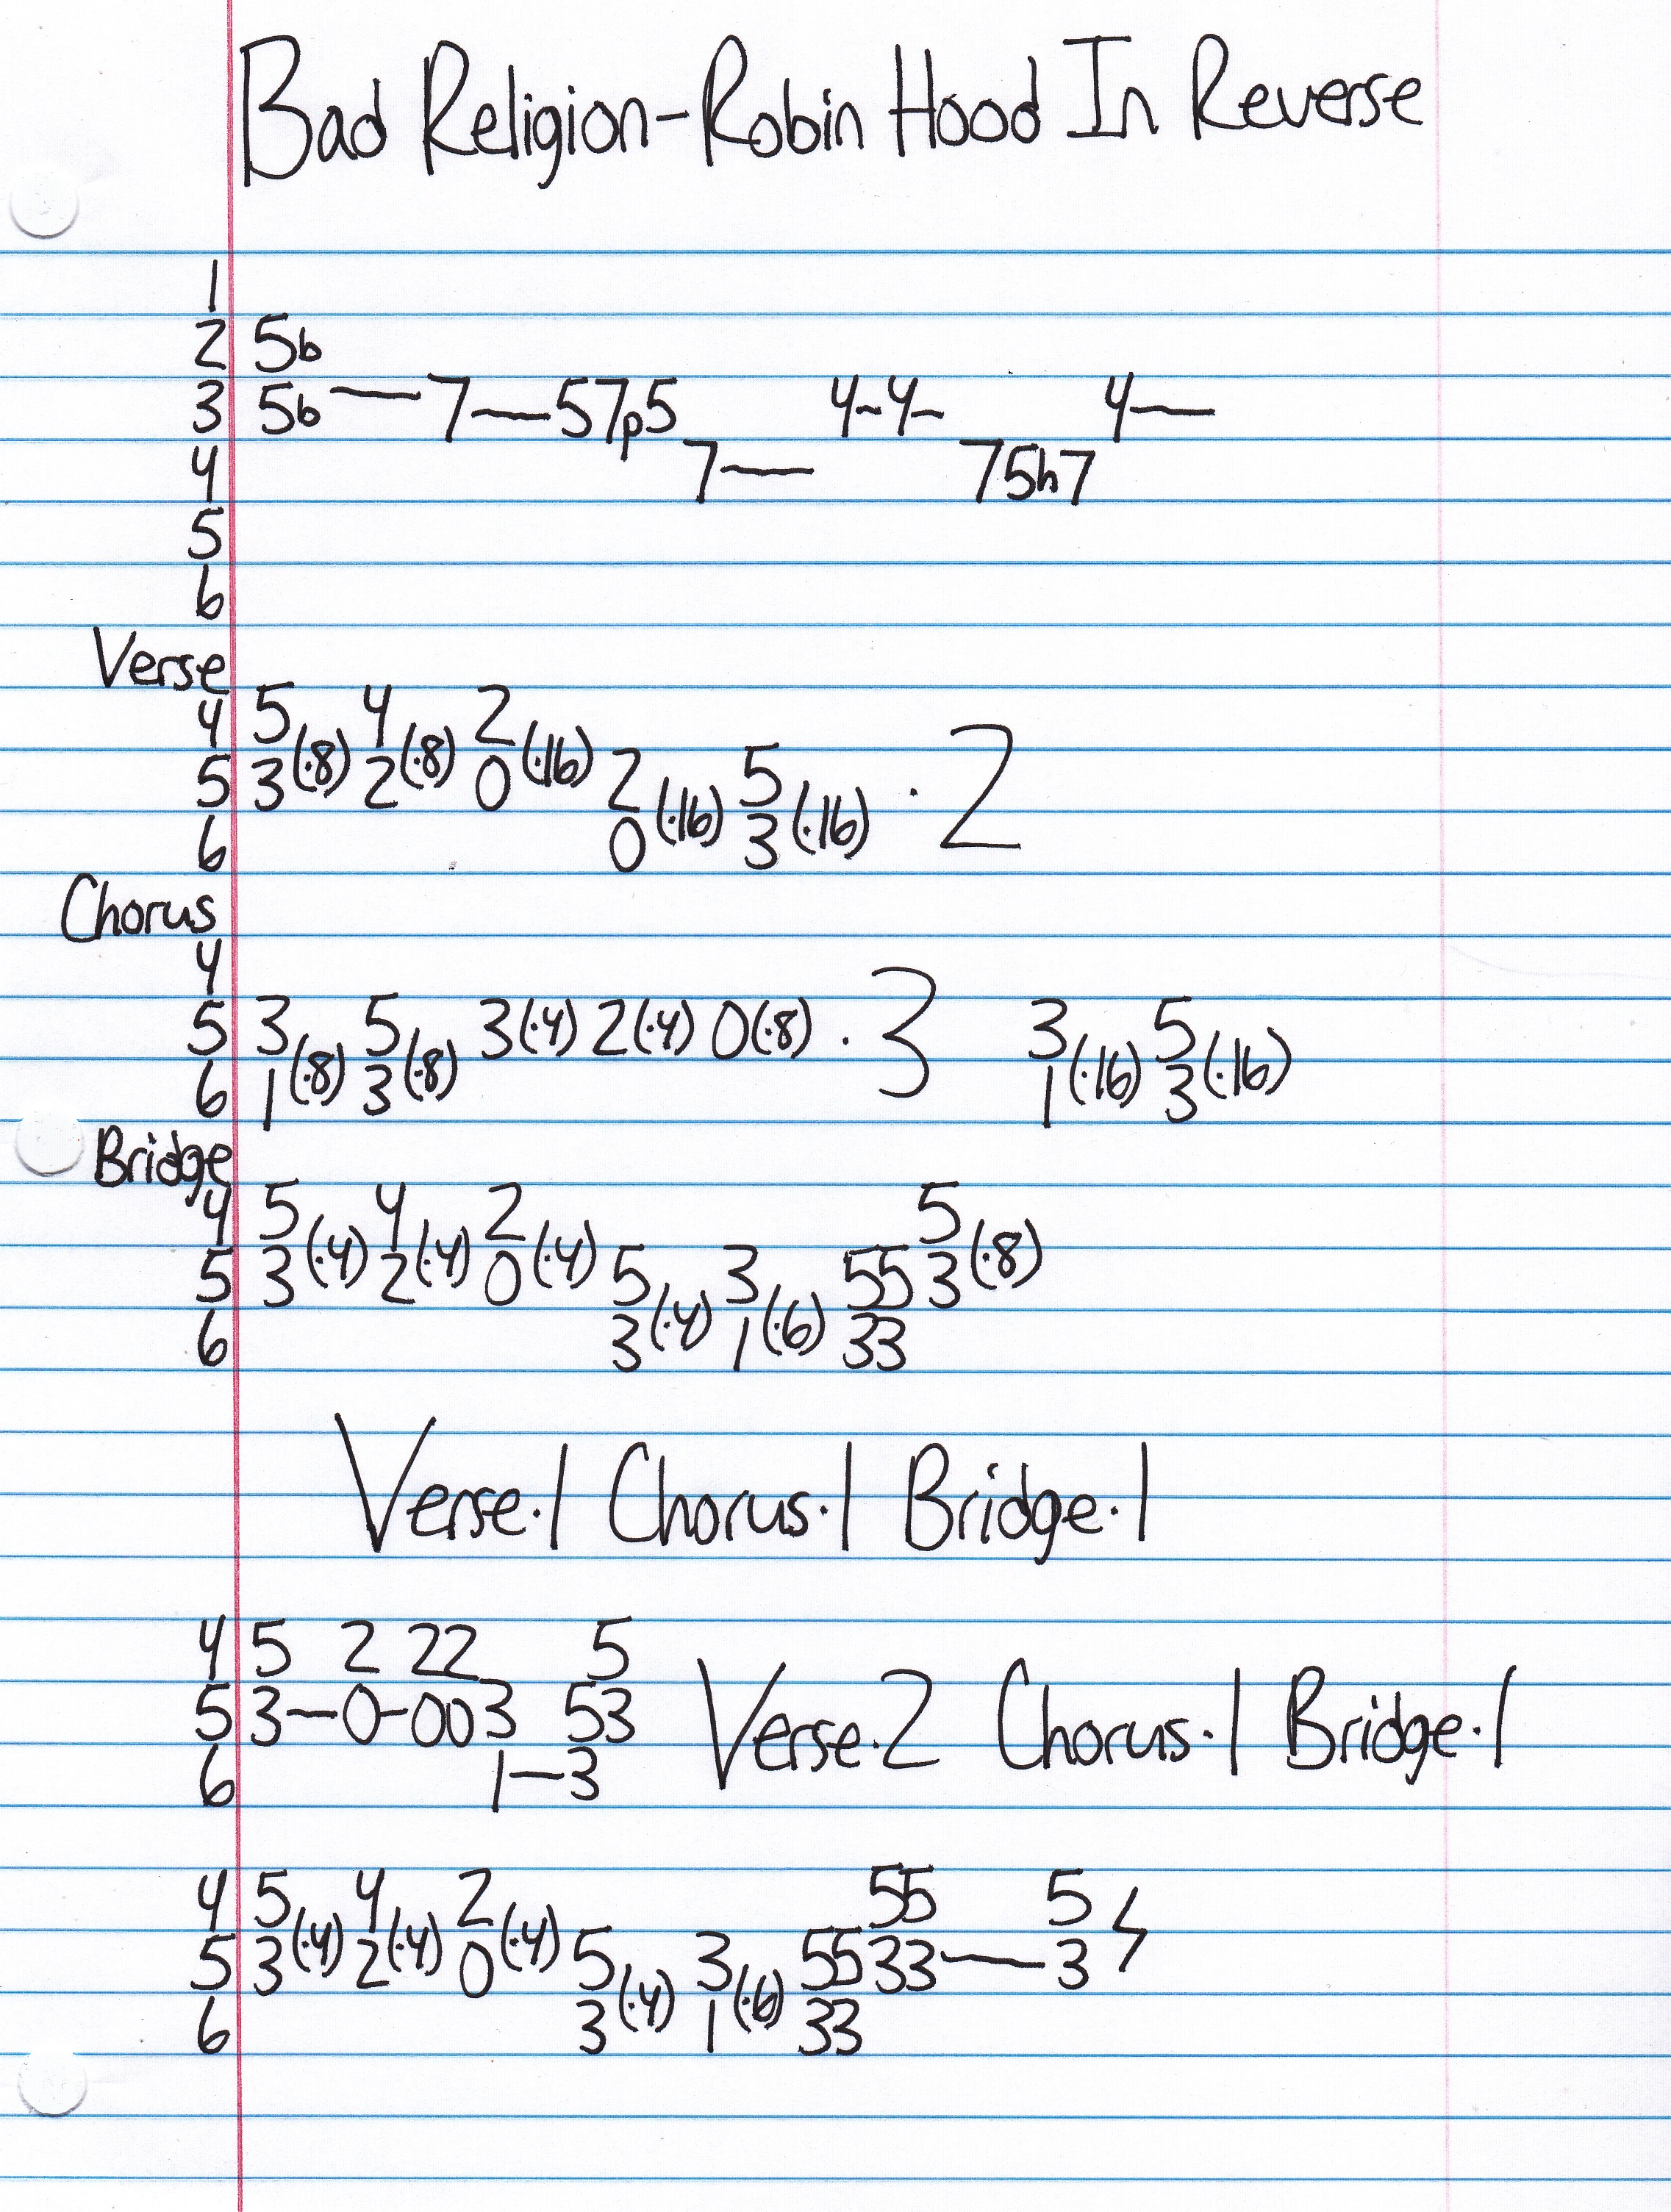 Bad Religion-Robin Hood In Reverse
1
2 5b
3 5b — 7 — 5 7p5 4-4- 4—
4 7— 7 5h7
5
6
Verse
4 5 4 2
5 3(·8) 2(·8) 0(·16) 2 5
6 0(·16) 3(·16) · 2
Chorus
4
5 3 5 3(·4) 2(·4) 0(·8) · 3 3 5
6 1(·8) 3(·8) 1(·16) 3(·16)
Bridge
4 5 4 2 5
5 3(·4) 2(·4) 0(·4) 5 3 55 3(·8)
6 3(·4) 1(·6) 33
Verse·1 Chorus·1 Bridge·1
4 5 2 22 5
5 3—0-00 3 53 Verse·2 Chorus·1 Bridge·1
6 1—3
4 5 4 2 55 5
5 3(·4) 2(·4) 0(·4) 5 3 55 33—3
6 3(·4) 1(·6) 33